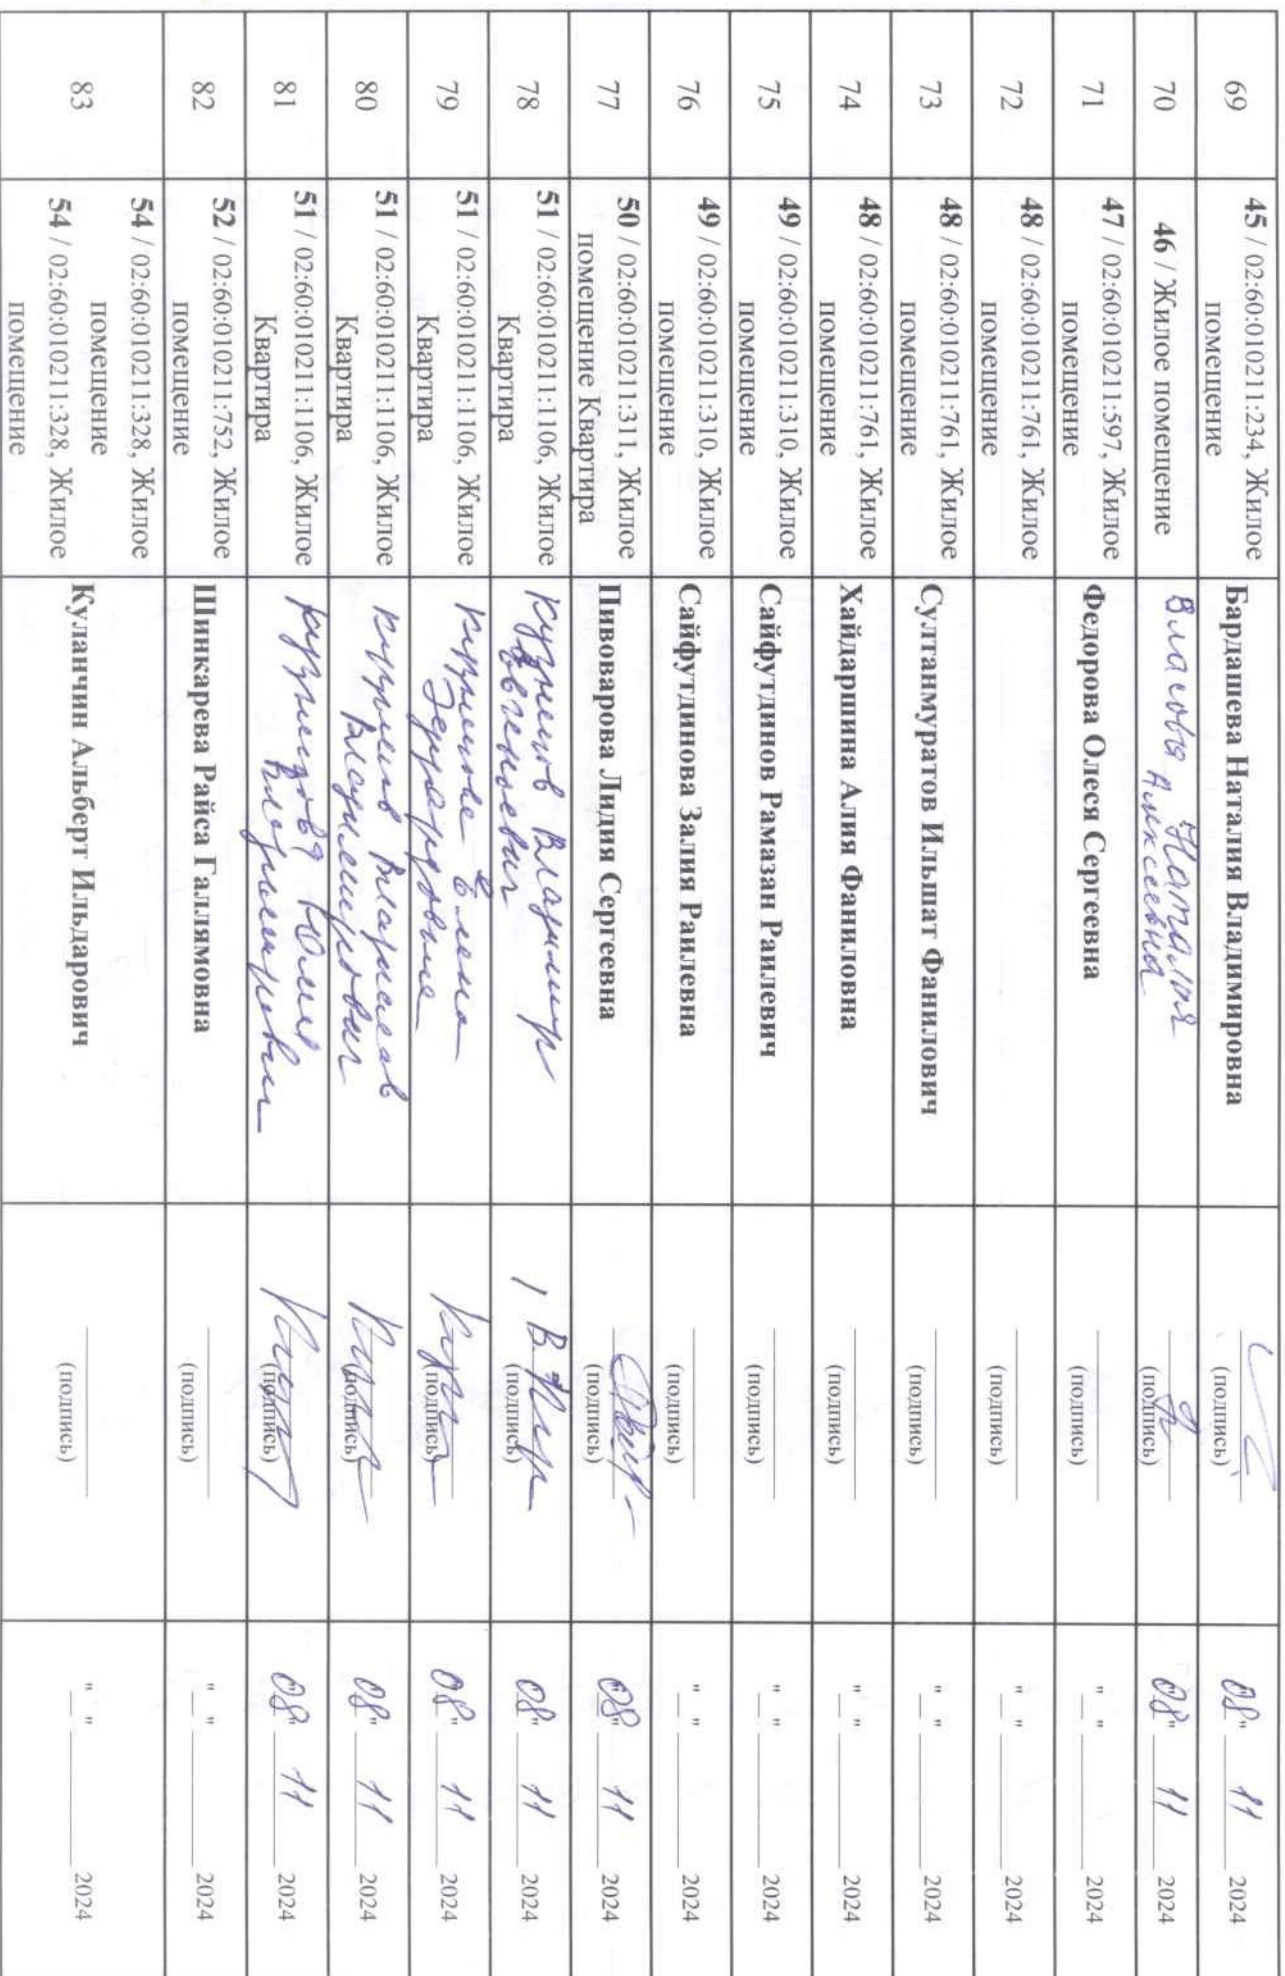 69
45 / 02:60:010211:234, Жилое
помещение
Бардашева Наталия Владимировна
(подпись)
"08" 11 2024
70
46 / Жилое помещение
Власова Наталия
Алексеевна
(подпись)
"08" 11 2024
71
47 / 02:60:010211:597, Жилое
помещение
Федорова Олеся Сергеевна
(подпись)
"__" 2024
72
48 / 02:60:010211:761, Жилое
помещение
(подпись)
"__" 2024
73
48 / 02:60:010211:761, Жилое
помещение
Султанмуратов Ильшат Фанилович
(подпись)
"__" 2024
74
48 / 02:60:010211:761, Жилое
помещение
Хайдаршина Алия Фаниловна
(подпись)
"__" 2024
75
49 / 02:60:010211:310, Жилое
помещение
Сайфутдинов Рамазан Раилевич
(подпись)
"__" 2024
76
49 / 02:60:010211:310, Жилое
помещение
Сайфутдинова Залия Раилевна
(подпись)
"__" 2024
77
50 / 02:60:010211:311, Жилое
помещение Квартира
Пивоварова Лидия Сергеевна
(подпись)
"08" 11 2024
78
51 / 02:60:010211:1106, Жилое
Квартира
Кузнецов Владимир
Евгеньевич
(подпись)
"08" 11 2024
79
51 / 02:60:010211:1106, Жилое
Квартира
Елена
(подпись)
"08" 11 2024
80
51 / 02:60:010211:1106, Жилое
Квартира
Владимирович
(подпись)
"08" 11 2024
81
51 / 02:60:010211:1106, Жилое
Квартира
Кузнецова
(подпись)
"08" 11 2024
82
52 / 02:60:010211:752, Жилое
помещение
Шинкарева Райса Галлямовна
(подпись)
"__" 2024
83
54 / 02:60:010211:328, Жилое
помещение
54 / 02:60:010211:328, Жилое
помещение
Куланчин Альберт Ильдарович
(подпись)
"__" 2024